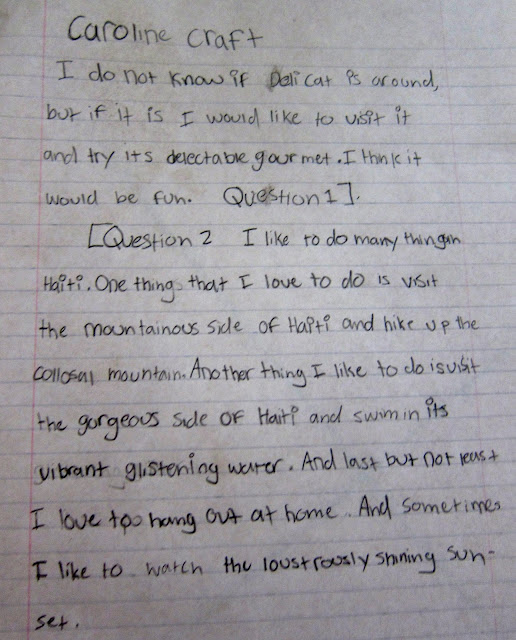 Caroline Craft
I do not know if Deli cat is around,
but if it is I would like to visit it
and try its delectable gourmet. I thnk it
would be fun. Question 1].
[Question 2 I like to do many things in
Haiti. One thing that I love to do is visit
the mountainous side of Haiti and hike up the
collosal mountain. Another thing I like to do is visit
the gorgeous side of Haiti and swim in its
vibrant glistening water. And last but not least
I love too hang out at home. And sometimes
I like to watch the loustrously shining sun-
set.